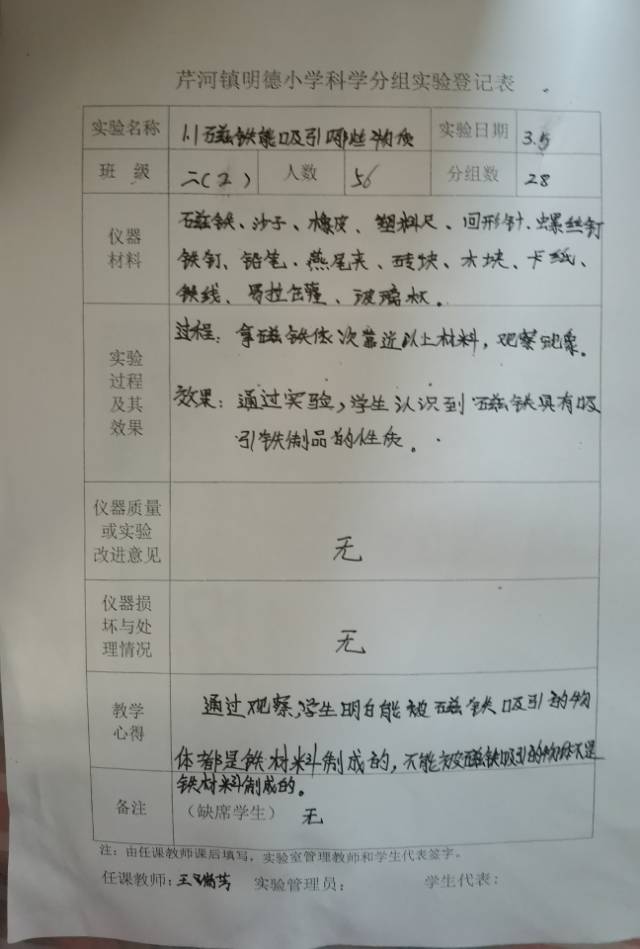 芹河镇明德小学科学分组实验登记表
实验名称 1.1磁铁能吸引哪些物质 实验日期 3.5
班 级 二(2) 人数 56 分组数 28
仪器材料
磁铁、沙子、橡皮、塑料尺、回形针、螺丝钉
铁钉、铅笔、燕尾夹、砖块、木块、卡纸、
铁线、易拉罐、玻璃杯。
实验过程及其效果
过程：拿磁铁依次靠近以上材料，观察现象。
效果：通过实验，学生认识到磁铁具有吸
引铁制品的性质。
仪器质量或实验改进意见 无
仪器损坏与处理情况 无
教学心得
通过观察，学生明白能被磁铁吸引的物
体都是铁材料制成的，不能被磁铁吸引的物体不是
铁材料制成的。
备注 （缺席学生） 无
注：由任课教师课后填写，实验室管理教师和学生代表签字。
任课教师： 实验管理员： 学生代表：